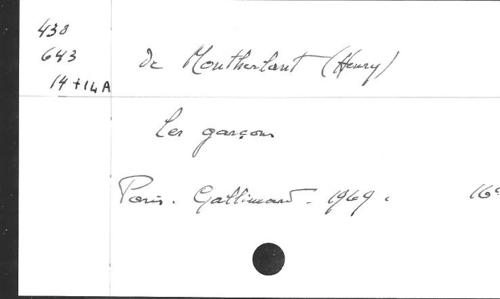 438
643
14+14A
de Montherlant (Henry)
Les garçons
Paris. Gallimard. 1969. 16°